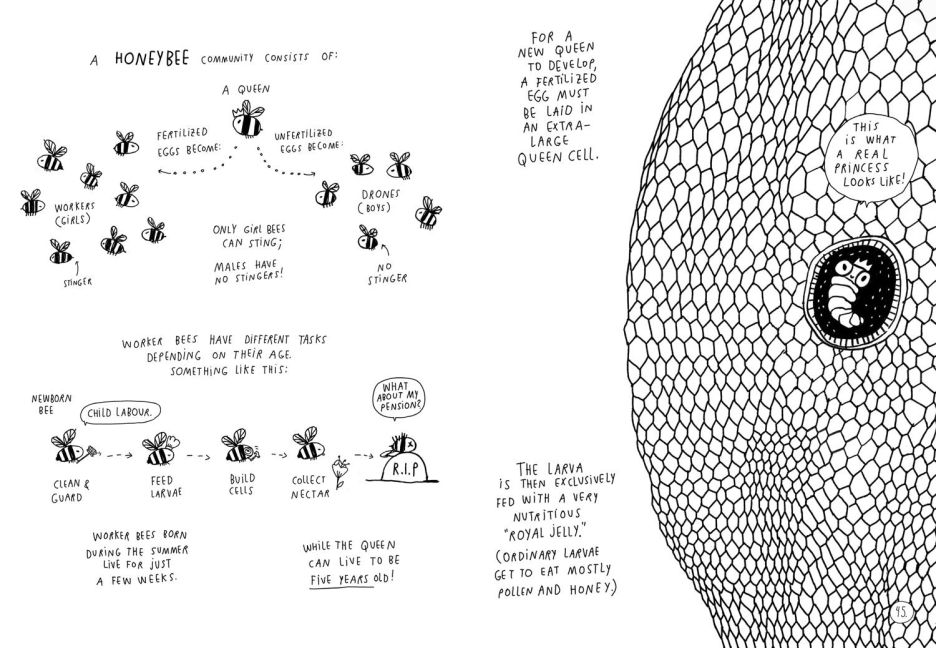 A HONEYBEE COMMUNITY CONSISTS OF:
A QUEEN
FERTILIZED
EGGS BECOME:
UNFERTILIZED
EGGS BECOME:
WORKERS
(GIRLS)
DRONES
(BOYS)
STINGER
ONLY GIRL BEES
CAN STING;
MALES HAVE
NO STINGERS!
NO
STINGER
WORKER BEES HAVE DIFFERENT TASKS
DEPENDING ON THEIR AGE.
SOMETHING LIKE THIS:
NEWBORN
BEE
CHILD LABOUR.
WHAT
ABOUT MY
PENSION?
R.I.P
CLEAN &
GUARD
FEED
LARVAE
BUILD
CELLS
COLLECT
NECTAR
WORKER BEES BORN
DURING THE SUMMER
LIVE FOR JUST
A FEW WEEKS.
WHILE THE QUEEN
CAN LIVE TO BE
FIVE YEARS OLD!
FOR A
NEW QUEEN
TO DEVELOP,
A FERTILIZED
EGG MUST
BE LAID IN
AN EXTRA-
LARGE
QUEEN CELL.
THIS
IS WHAT
A REAL
PRINCESS
LOOKS LIKE!
THE LARVA
IS THEN EXCLUSIVELY
FED WITH A VERY
NUTRITIOUS
"ROYAL JELLY."
(ORDINARY LARVAE
GET TO EAT MOSTLY
POLLEN AND HONEY.)
95.